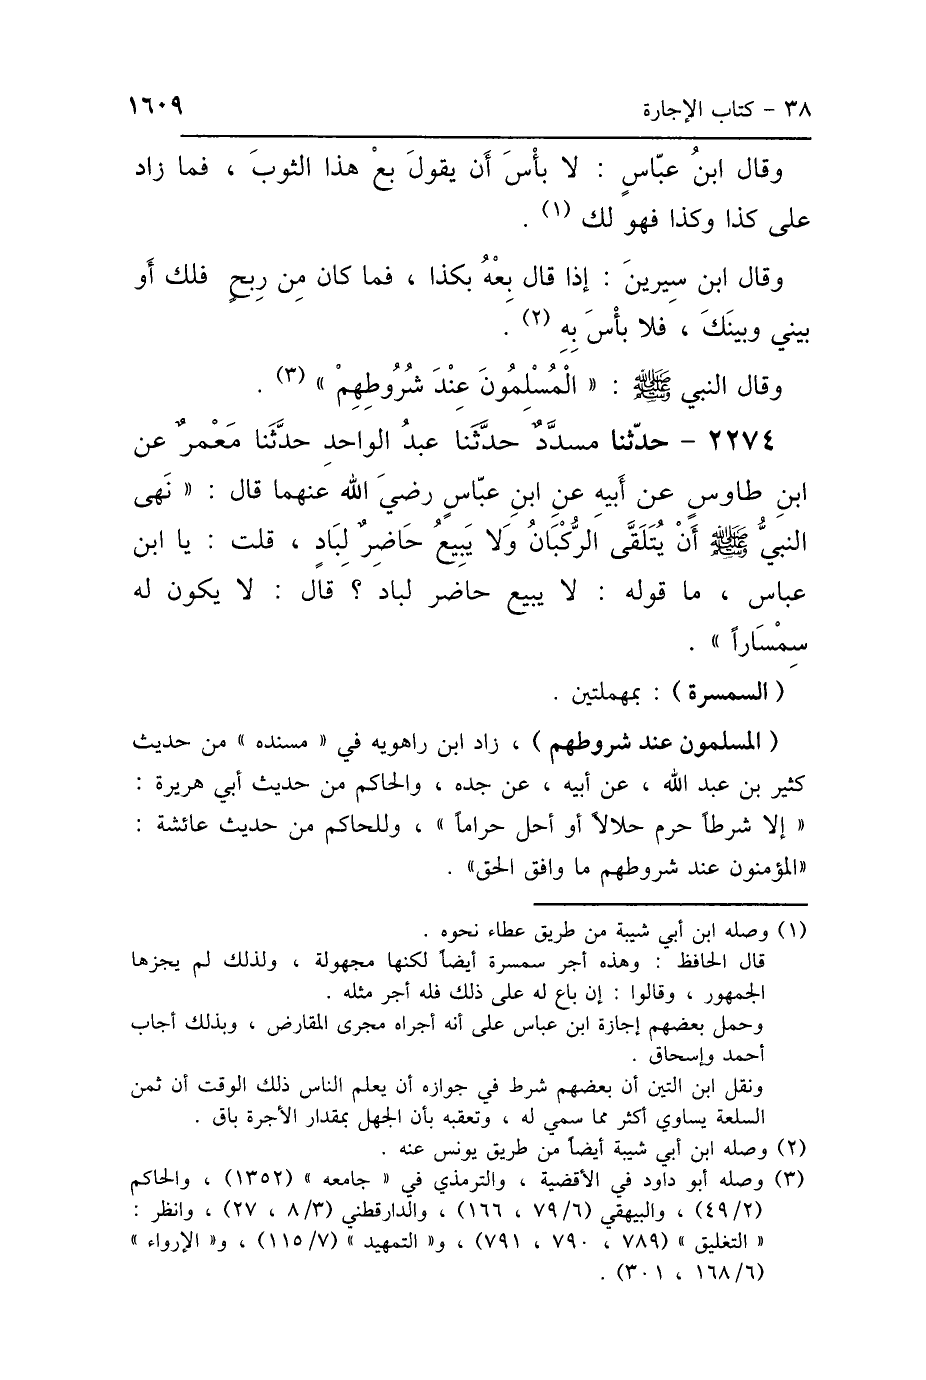 ٣٨ - كتاب الإجارة ١٦٠٩
وقال ابنُ عبّاسٍ : لا بأْسَ أَن يقولَ بعْ هذا الثوبَ ، فما زاد
على كذا وكذا فهو لك (١) .
وقال ابن سِيرينَ : إذا قال بِعْهُ بكذا ، فما كان مِن رِبحٍ فلك أَو
بيني وبينَكَ ، فلا بأْسَ بِهِ (٢) .
وقال النبي ﷺ : « الْمُسْلِمُونَ عِنْدَ شُرُوطِهِمْ » (٣) .
٢٢٧٤ - حدّثنا مسدَّدٌ حدَّثَنا عبدُ الواحدِ حدَّثَنا مَعْمرٌ عن
ابنِ طاوسٍ عن أَبيهِ عنِ ابنِ عبّاسٍ رضيَ الله عنهما قال : « نَهى
النبيُّ ﷺ أَنْ يُتَلَقَّى الرُّكْبَانُ وَلا يَبِيعُ حَاضِرٌ لِبَادٍ ، قلت : يا ابن
عباس ، ما قوله : لا يبيع حاضر لباد ؟ قال : لا يكون له
سِمْسَاراً » .
( السمسرة ) : بمهملتين .
( المسلمون عند شروطهم ) ، زاد ابن راهويه في « مسنده » من حديث
كثير بن عبد الله ، عن أبيه ، عن جده ، والحاكم من حديث أبي هريرة :
« إلا شرطاً حرم حلالاً أو أحل حراماً » ، وللحاكم من حديث عائشة :
«المؤمنون عند شروطهم ما وافق الحق» .
(١) وصله ابن أبي شيبة من طريق عطاء نحوه .
قال الحافظ : وهذه أجر سمسرة أيضاً لكنها مجهولة ، ولذلك لم يجزها
الجمهور ، وقالوا : إن باع له على ذلك فله أجر مثله .
وحمل بعضهم إجازة ابن عباس على أنه أجراه مجرى المقارض ، وبذلك أجاب
أحمد وإسحاق .
ونقل ابن التين أن بعضهم شرط في جوازه أن يعلم الناس ذلك الوقت أن ثمن
السلعة يساوي أكثر مما سمي له ، وتعقبه بأن الجهل بمقدار الأجرة باق .
(٢) وصله ابن أبي شيبة أيضاً من طريق يونس عنه .
(٣) وصله أبو داود في الأقضية ، والترمذي في « جامعه » (١٣٥٢) ، والحاكم
(٤٩/٢) ، والبيهقي (٧٩/٦ ، ١٦٦) ، والدارقطني (٨/٣ ، ٢٧) ، وانظر :
« التغليق » (٧٨٩ ، ٧٩٠ ، ٧٩١) ، و« التمهيد » (١١٥/٧) ، و« الإرواء »
(١٦٨/٦ ، ٣٠١) .